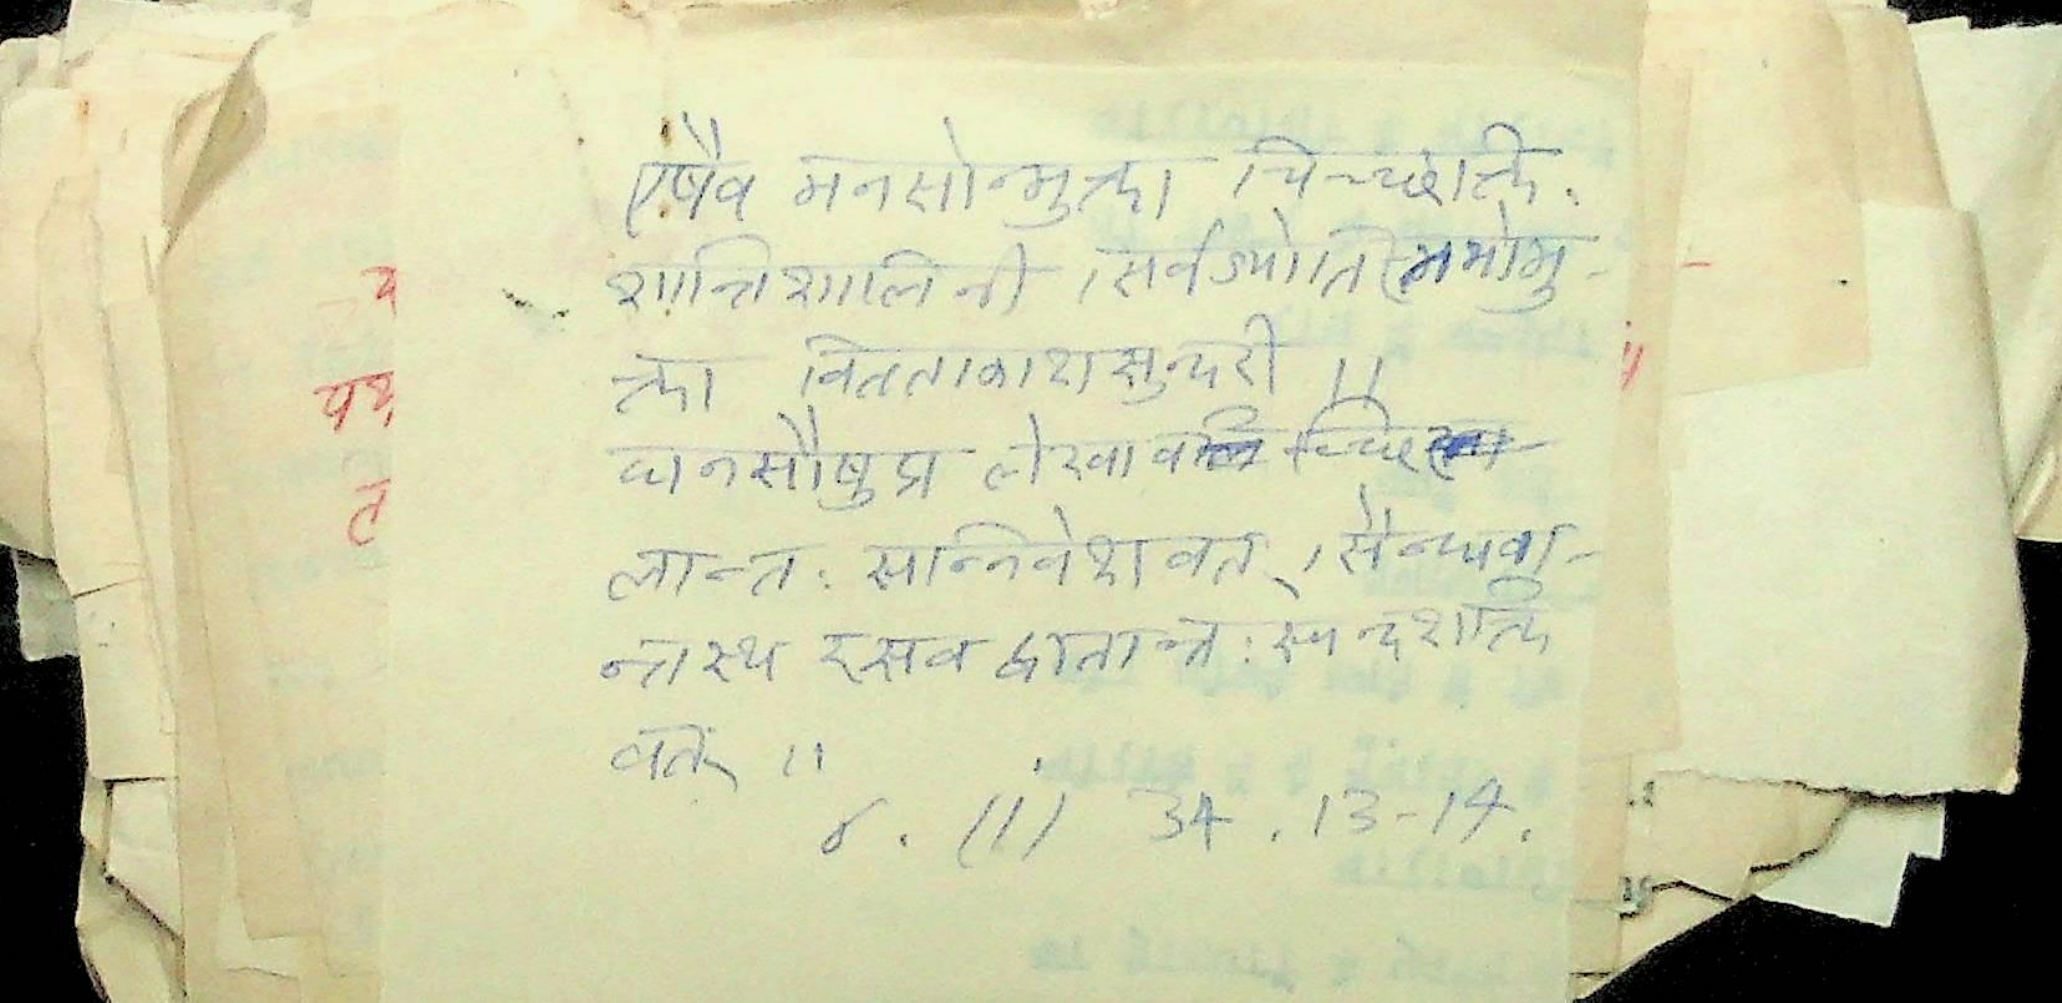 एषैव मनसोन्मुक्ता चिच्छक्तिः
शान्तिशालिनी । सर्वज्योतिस्तमोमु-
क्ता वितताकाशसुन्दरी ॥
घनसौषुप्त लेखाव
लान्तः सन्निवेशवत् । सैन्धवा-
न्तस्थ रसवद्वातान्तः स्पन्दशक्ति
वत् ॥
४. (1) 34 . 13-14.
य
यथ
ते
॥